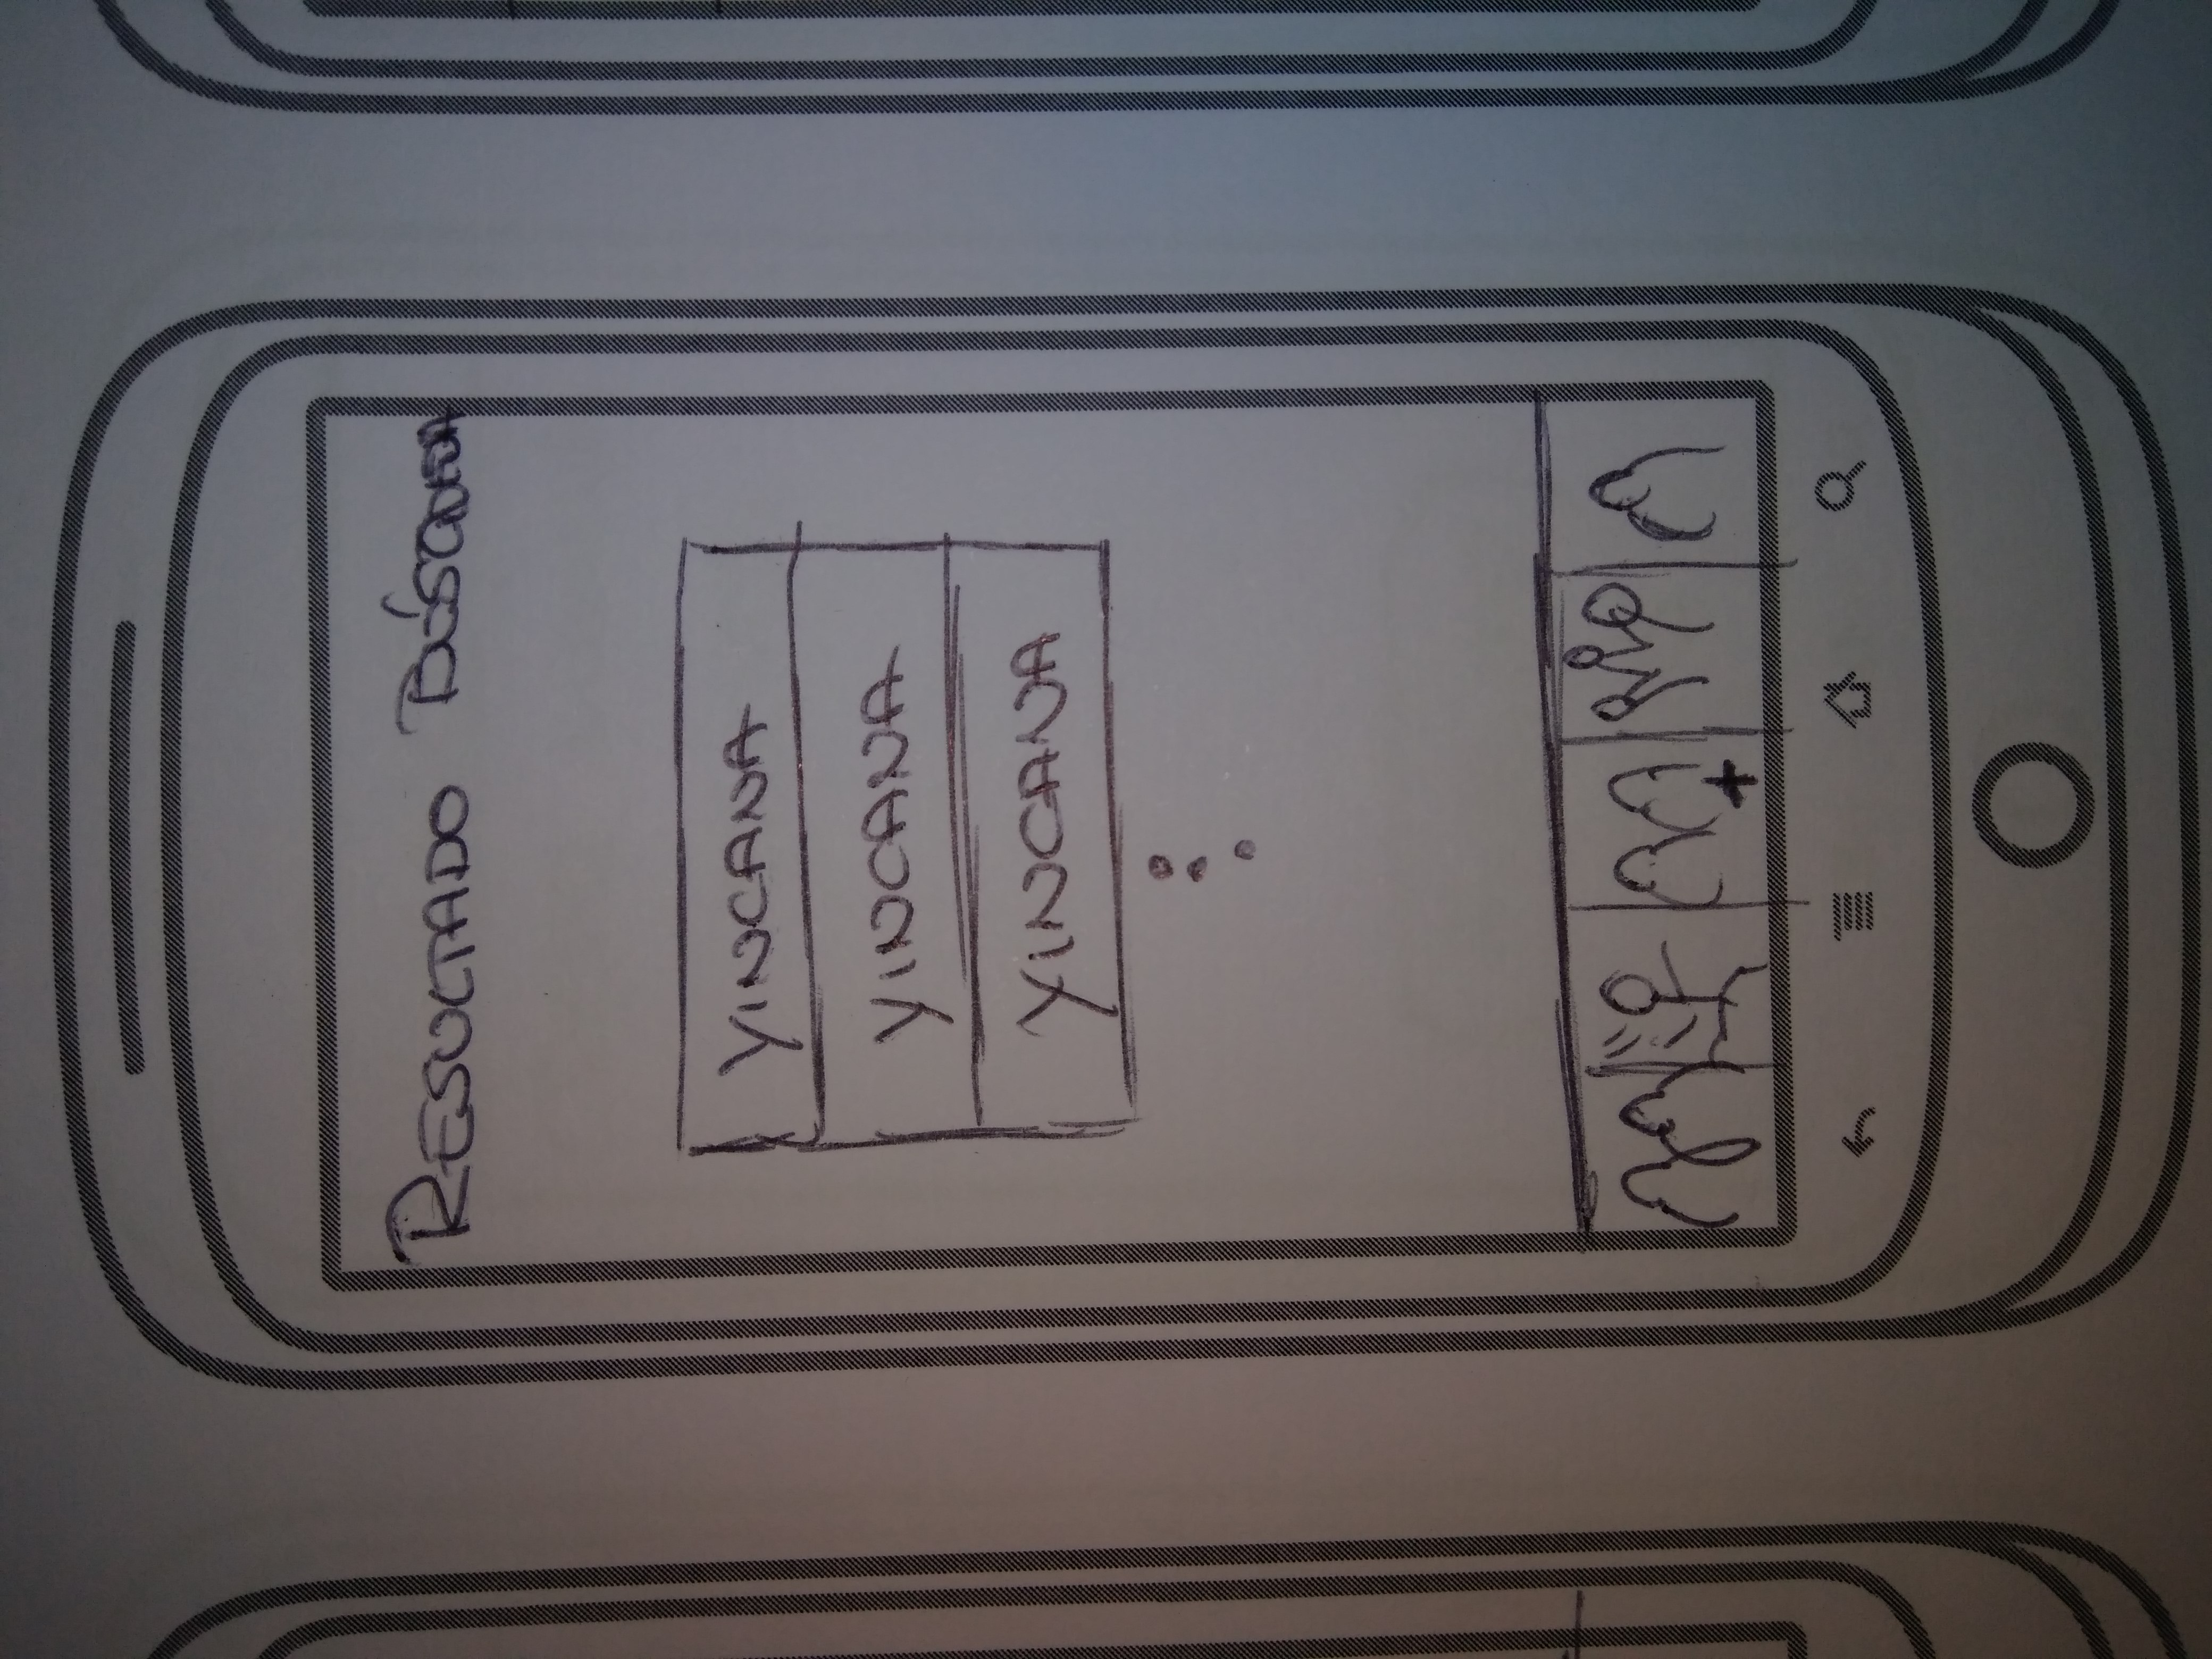 RESULTADO BÚSQUEDA
YINCANA
YINCANA
YINCANA